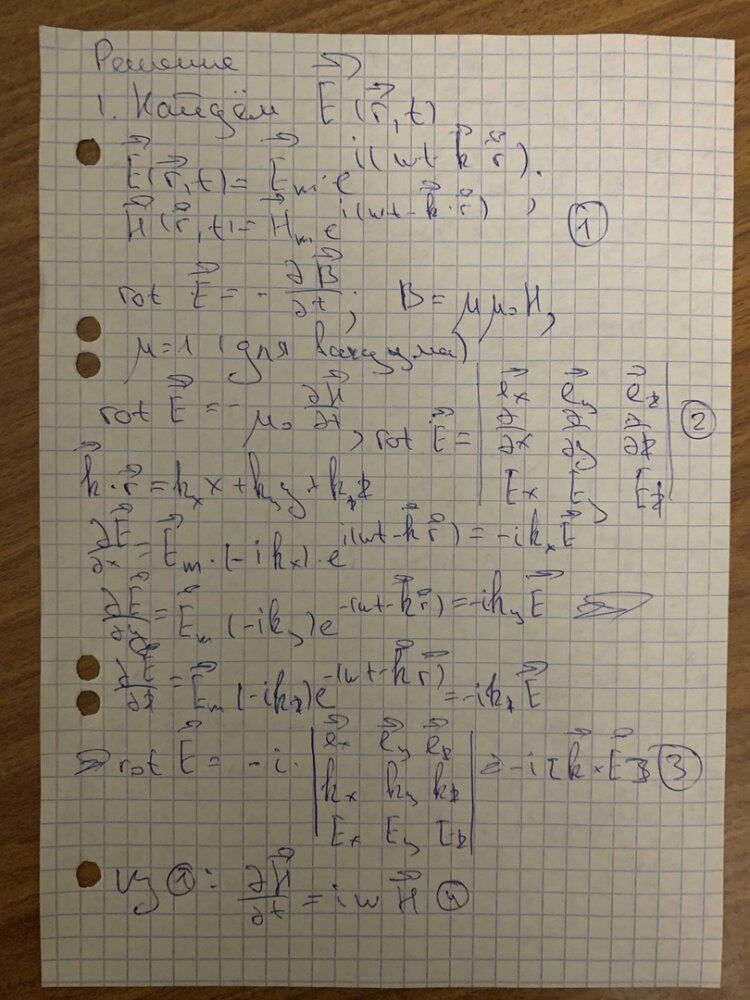 Решение
1. Найдём E⃗(r⃗,t)
E⃗(r⃗,t) = E⃗ₘ·e^{i(ωt - k⃗ r⃗)}.
H⃗(r⃗,t) = H⃗ₘ e^{i(ωt - k⃗·r⃗)}, ①
rot E⃗ = - ∂B⃗/∂t; B = μμ₀H,
μ=1 (для вакуума)
rot E⃗ = -μ₀ ∂H⃗/∂t; rot E⃗ = | e⃗x e⃗y e⃗z | ∂/∂x ∂/∂y ∂/∂z | Ex Ey Ez | ②
k⃗·r⃗ = kₓx + k_y y + k_z z
∂E⃗/∂x = E⃗ₘ·(-ikₓ)·e^{i(ωt - k⃗ r⃗)} = -ikₓE⃗
∂E⃗/∂y = E⃗ₘ(-ik_y)e^{-(ωt - k⃗ r⃗)} = -ik_y E⃗
∂E⃗/∂z = E⃗ₘ(-ik_z)e^{-(ωt - k⃗ r⃗)} = -ik_z E⃗
⇒ rot E⃗ = -i·| e⃗x e⃗y e⃗z | kx ky kz | Ex Ey Ez | = -i[k⃗×E⃗] ③
Из ①: ∂H⃗/∂t = iωH⃗ ④